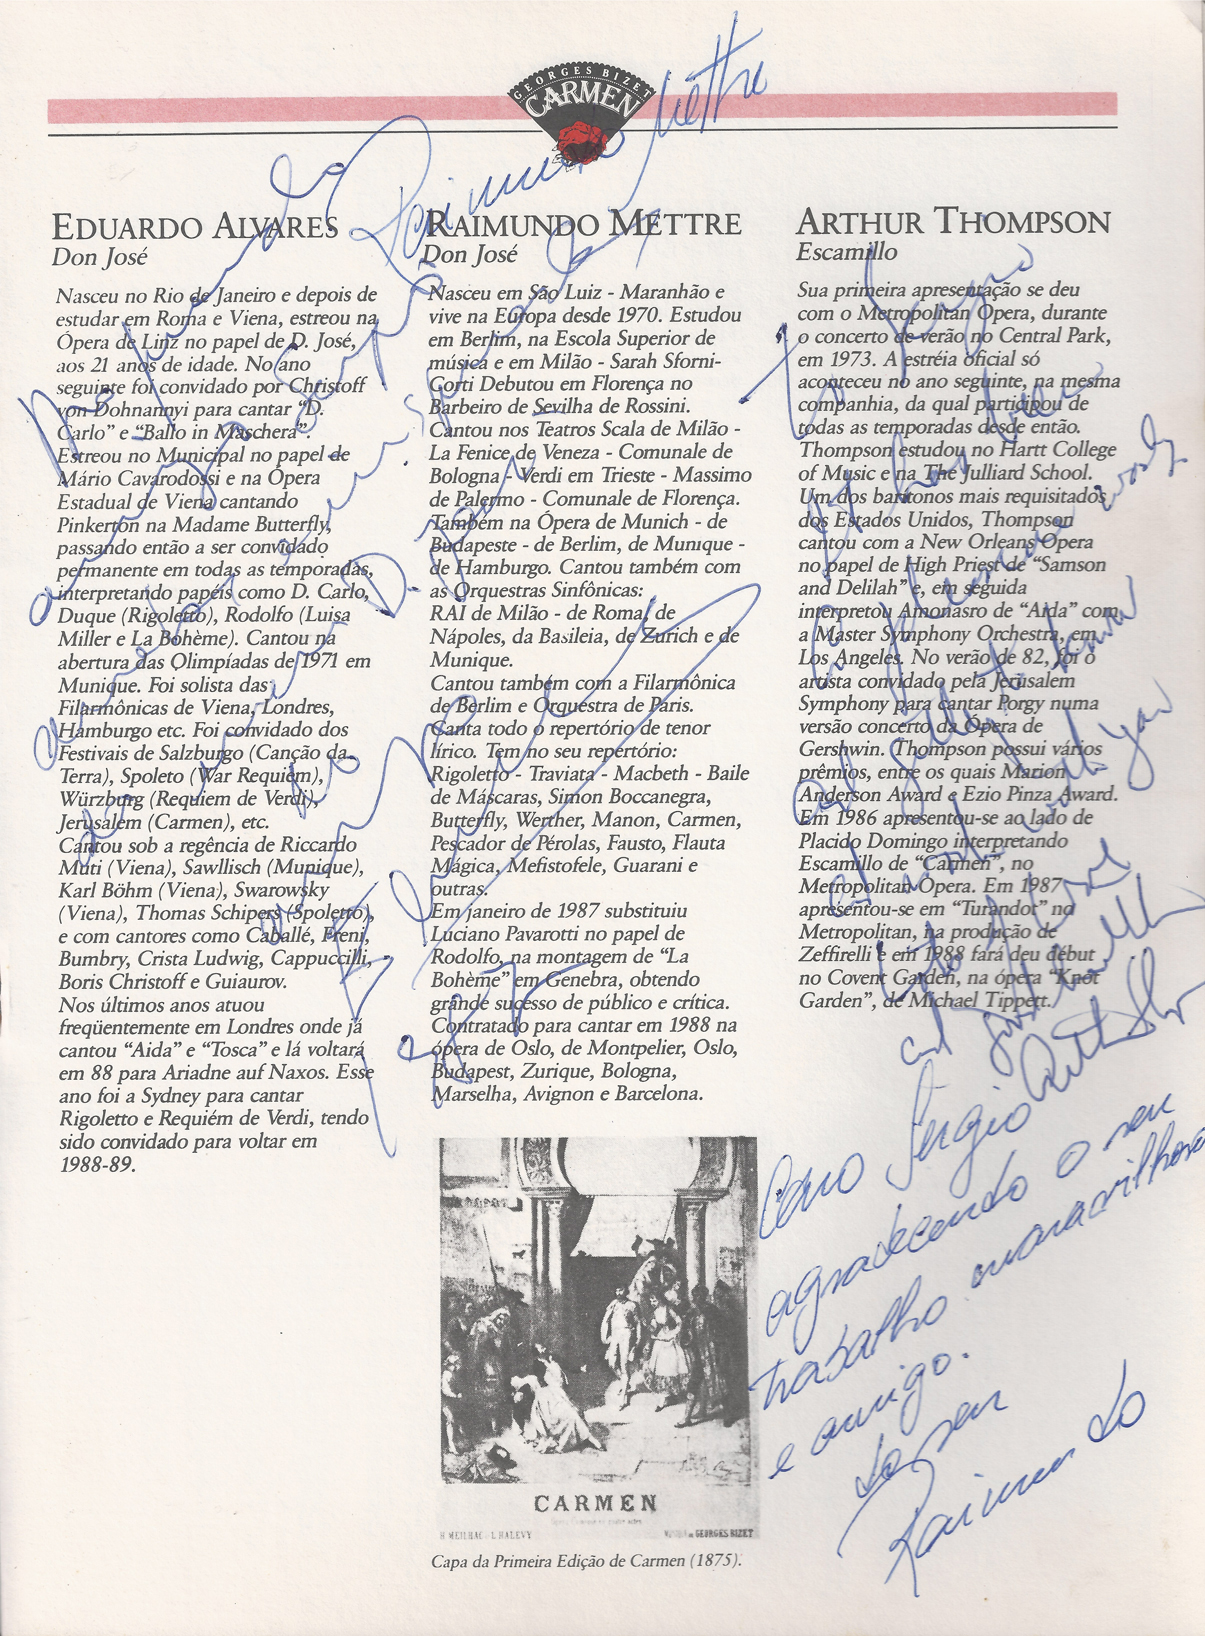 GEORGES BIZET
CARMEN
EDUARDO ALVARES
Don José
Nasceu no Rio de Janeiro e depois de
estudar em Roma e Viena, estreou na
Ópera de Linz no papel de D. José,
aos 21 anos de idade. No ano
seguinte foi convidado por Christoff
von Dohnannyi para cantar “D.
Carlo” e “Ballo in Maschera”.
Estreou no Municipal no papel de
Mário Cavarodossi e na Ópera
Estadual de Viena cantando
Pinkerton na Madame Butterfly,
passando então a ser convidado
permanente em todas as temporadas,
interpretando papéis como D. Carlo,
Duque (Rigoletto), Rodolfo (Luisa
Miller e La Bohème). Cantou na
abertura das Olimpíadas de 1971 em
Munique. Foi solista das
Filarmônicas de Viena, Londres,
Hamburgo etc. Foi convidado dos
Festivais de Salzburgo (Canção da
Terra), Spoleto (War Requiem),
Würzburg (Requiem de Verdi),
Jerusalém (Carmen), etc.
Cantou sob a regência de Riccardo
Muti (Viena), Sawllisch (Munique),
Karl Böhm (Viena), Swarowsky
(Viena), Thomas Schipers (Spoletto),
e com cantores como Caballé, Freni,
Bumbry, Crista Ludwig, Cappuccilli,
Boris Christoff e Guiaurov.
Nos últimos anos atuou
freqüentemente em Londres onde já
cantou “Aida” e “Tosca” e lá voltará
em 88 para Ariadne auf Naxos. Esse
ano foi a Sydney para cantar
Rigoletto e Requiém de Verdi, tendo
sido convidado para voltar em
1988-89.
RAIMUNDO METTRE
Don José
Nasceu em São Luiz - Maranhão e
vive na Europa desde 1970. Estudou
em Berlim, na Escola Superior de
música e em Milão - Sarah Sforni-
Corti Debutou em Florença no
Barbeiro de Sevilha de Rossini.
Cantou nos Teatros Scala de Milão -
La Fenice de Veneza - Comunale de
Bologna - Verdi em Trieste - Massimo
de Palermo - Comunale de Florença.
Também na Ópera de Munich - de
Budapeste - de Berlim, de Munique -
de Hamburgo. Cantou também com
as Orquestras Sinfônicas:
RAI de Milão - de Roma, de
Nápoles, da Basileia, de Zurich e de
Munique.
Cantou também com a Filarmônica
de Berlim e Orquestra de Paris.
Canta todo o repertório de tenor
lírico. Tem no seu repertório:
Rigoletto - Traviata - Macbeth - Baile
de Máscaras, Simon Boccanegra,
Butterfly, Werther, Manon, Carmen,
Pescador de Pérolas, Fausto, Flauta
Mágica, Mefistofele, Guarani e
outras.
Em janeiro de 1987 substituiu
Luciano Pavarotti no papel de
Rodolfo, na montagem de “La
Bohème” em Genebra, obtendo
grande sucesso de público e crítica.
Contratado para cantar em 1988 na
ópera de Oslo, de Montpelier, Oslo,
Budapest, Zurique, Bologna,
Marselha, Avignon e Barcelona.
CARMEN
H. MEILHAC - L. HALEVY
GEORGES BIZET
Capa da Primeira Edição de Carmen (1875).
ARTHUR THOMPSON
Escamillo
Sua primeira apresentação se deu
com o Metropolitan Opera, durante
o concerto de verão no Central Park,
em 1973. A estréia oficial só
aconteceu no ano seguinte, na mesma
companhia, da qual participou de
todas as temporadas desde então.
Thompson estudou no Hartt College
of Music e na The Julliard School.
Um dos barítonos mais requisitados
dos Estados Unidos, Thompson
cantou com a New Orleans Opera
no papel de High Priest de “Samson
and Delilah” e, em seguida
interpretou Amonasro de “Aida” com
a Master Symphony Orchestra, em
Los Angeles. No verão de 82, foi o
artista convidado pela Jerusalem
Symphony para cantar Porgy numa
versão concerto da Ópera de
Gershwin. Thompson possui vários
prêmios, entre os quais Marion
Anderson Award e Ezio Pinza Award.
Em 1986 apresentou-se ao lado de
Placido Domingo interpretando
Escamillo de “Carmen”, no
Metropolitan Opera. Em 1987
apresentou-se em “Turandot” no
Metropolitan, na produção de
Zeffirelli e em 1988 fará deu début
no Covent Garden, na ópera “Knot
Garden”, de Michael Tippett.
Raimundo Mettre
to Sergio
It has been
a pleasure
work with you
Sergio
agradecendo o seu
trabalho maravilhoso
e amigo.
do seu
Raimundo